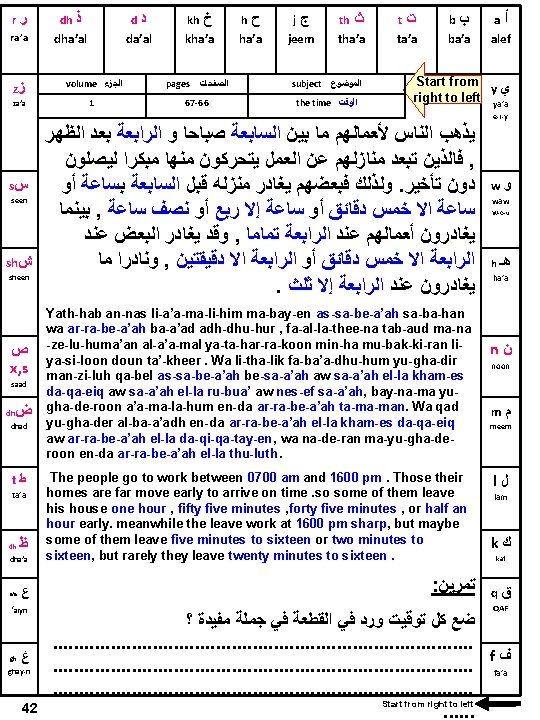 r ر
dh ذ
d د
kh خ
h ح
j ج
th ث
t ت
b ب
a أ
ra’a
dha’al
da’al
kha’a
ha’a
jeem
tha’a
ta’a
ba’a
alef
z ز
za’a
volume الجزء
pages الصفحات
subject الموضوع
1
67-66
the time الوقت
Start from
right to left
y ي
ya’a
e-i-y
يذهب الناس لأعمالهم ما بين السابعة صباحا و الرابعة بعد الظهر
, فالذين تبعد منازلهم عن العمل يتحركون منها مبكرا ليصلون
دون تأخير. ولذلك فبعضهم يغادر منزله قبل السابعة بساعة أو
ساعة الا خمس دقائق أو ساعة إلا ربع أو نصف ساعة , بينما
يغادرون أعمالهم عند الرابعة تماما , وقد يغادر البعض عند
الرابعة الا خمس دقائق أو الرابعة الا دقيقتين , ونادرا ما
يغادرون عند الرابعة إلا ثلث .
s س
seen
sh ش
sheen
w و
waw
w-o-u
h هـ
ha’a
Yath-hab an-nas li-a’a-ma-li-him ma-bay-en as-sa-be-a’ah sa-ba-han
wa ar-ra-be-a’ah ba-a’ad adh-dhu-hur , fa-al-la-thee-na tab-aud ma-na
-ze-lu-huma’an al-a’a-mal ya-ta-har-ra-koon min-ha mu-bak-ki-ran li-
ya-si-loon doun ta’-kheer . Wa li-tha-lik fa-ba’a-dhu-hum yu-gha-dir
man-zi-luh qa-bel as-sa-be-a’ah be-sa-a’ah aw sa-a’ah el-la kham-es
da-qa-eiq aw sa-a’ah el-la ru-bua’ aw nes-ef sa-a’ah, bay-na-ma yu-
gha-de-roon a’a-ma-la-hum en-da ar-ra-be-a’ah ta-ma-man. Wa qad
yu-gha-der al-ba-a’adh en-da ar-ra-be-a’ah el-la kham-es da-qa-eiq
aw ar-ra-be-a’ah el-la da-qi-qa-tay-en, wa na-de-ran ma-yu-gha-de-
roon en-da ar-ra-be-a’ah el-la thu-luth.
ص
x, s
saad
dh ض
dhad
n ن
noon
m م
meem
The people go to work between 0700 am and 1600 pm . Those their
homes are far move early to arrive on time .so some of them leave
his house one hour , fifty five minutes ,forty five minutes , or half an
hour early. meanwhile the leave work at 1600 pm sharp, but maybe
some of them leave five minutes to sixteen or two minutes to
sixteen, but rarely they leave twenty minutes to sixteen .
t ط
ta’a
dh ظ
dha’a
l ل
lam
k ك
kaf
ع
‘aiyn
gh غ
ghay-n
تمرين:
ضع كل توقيت ورد في القطعة في جملة مفيدة ؟
q ق
QAF
f ف
fa’a
42
Start from right to left